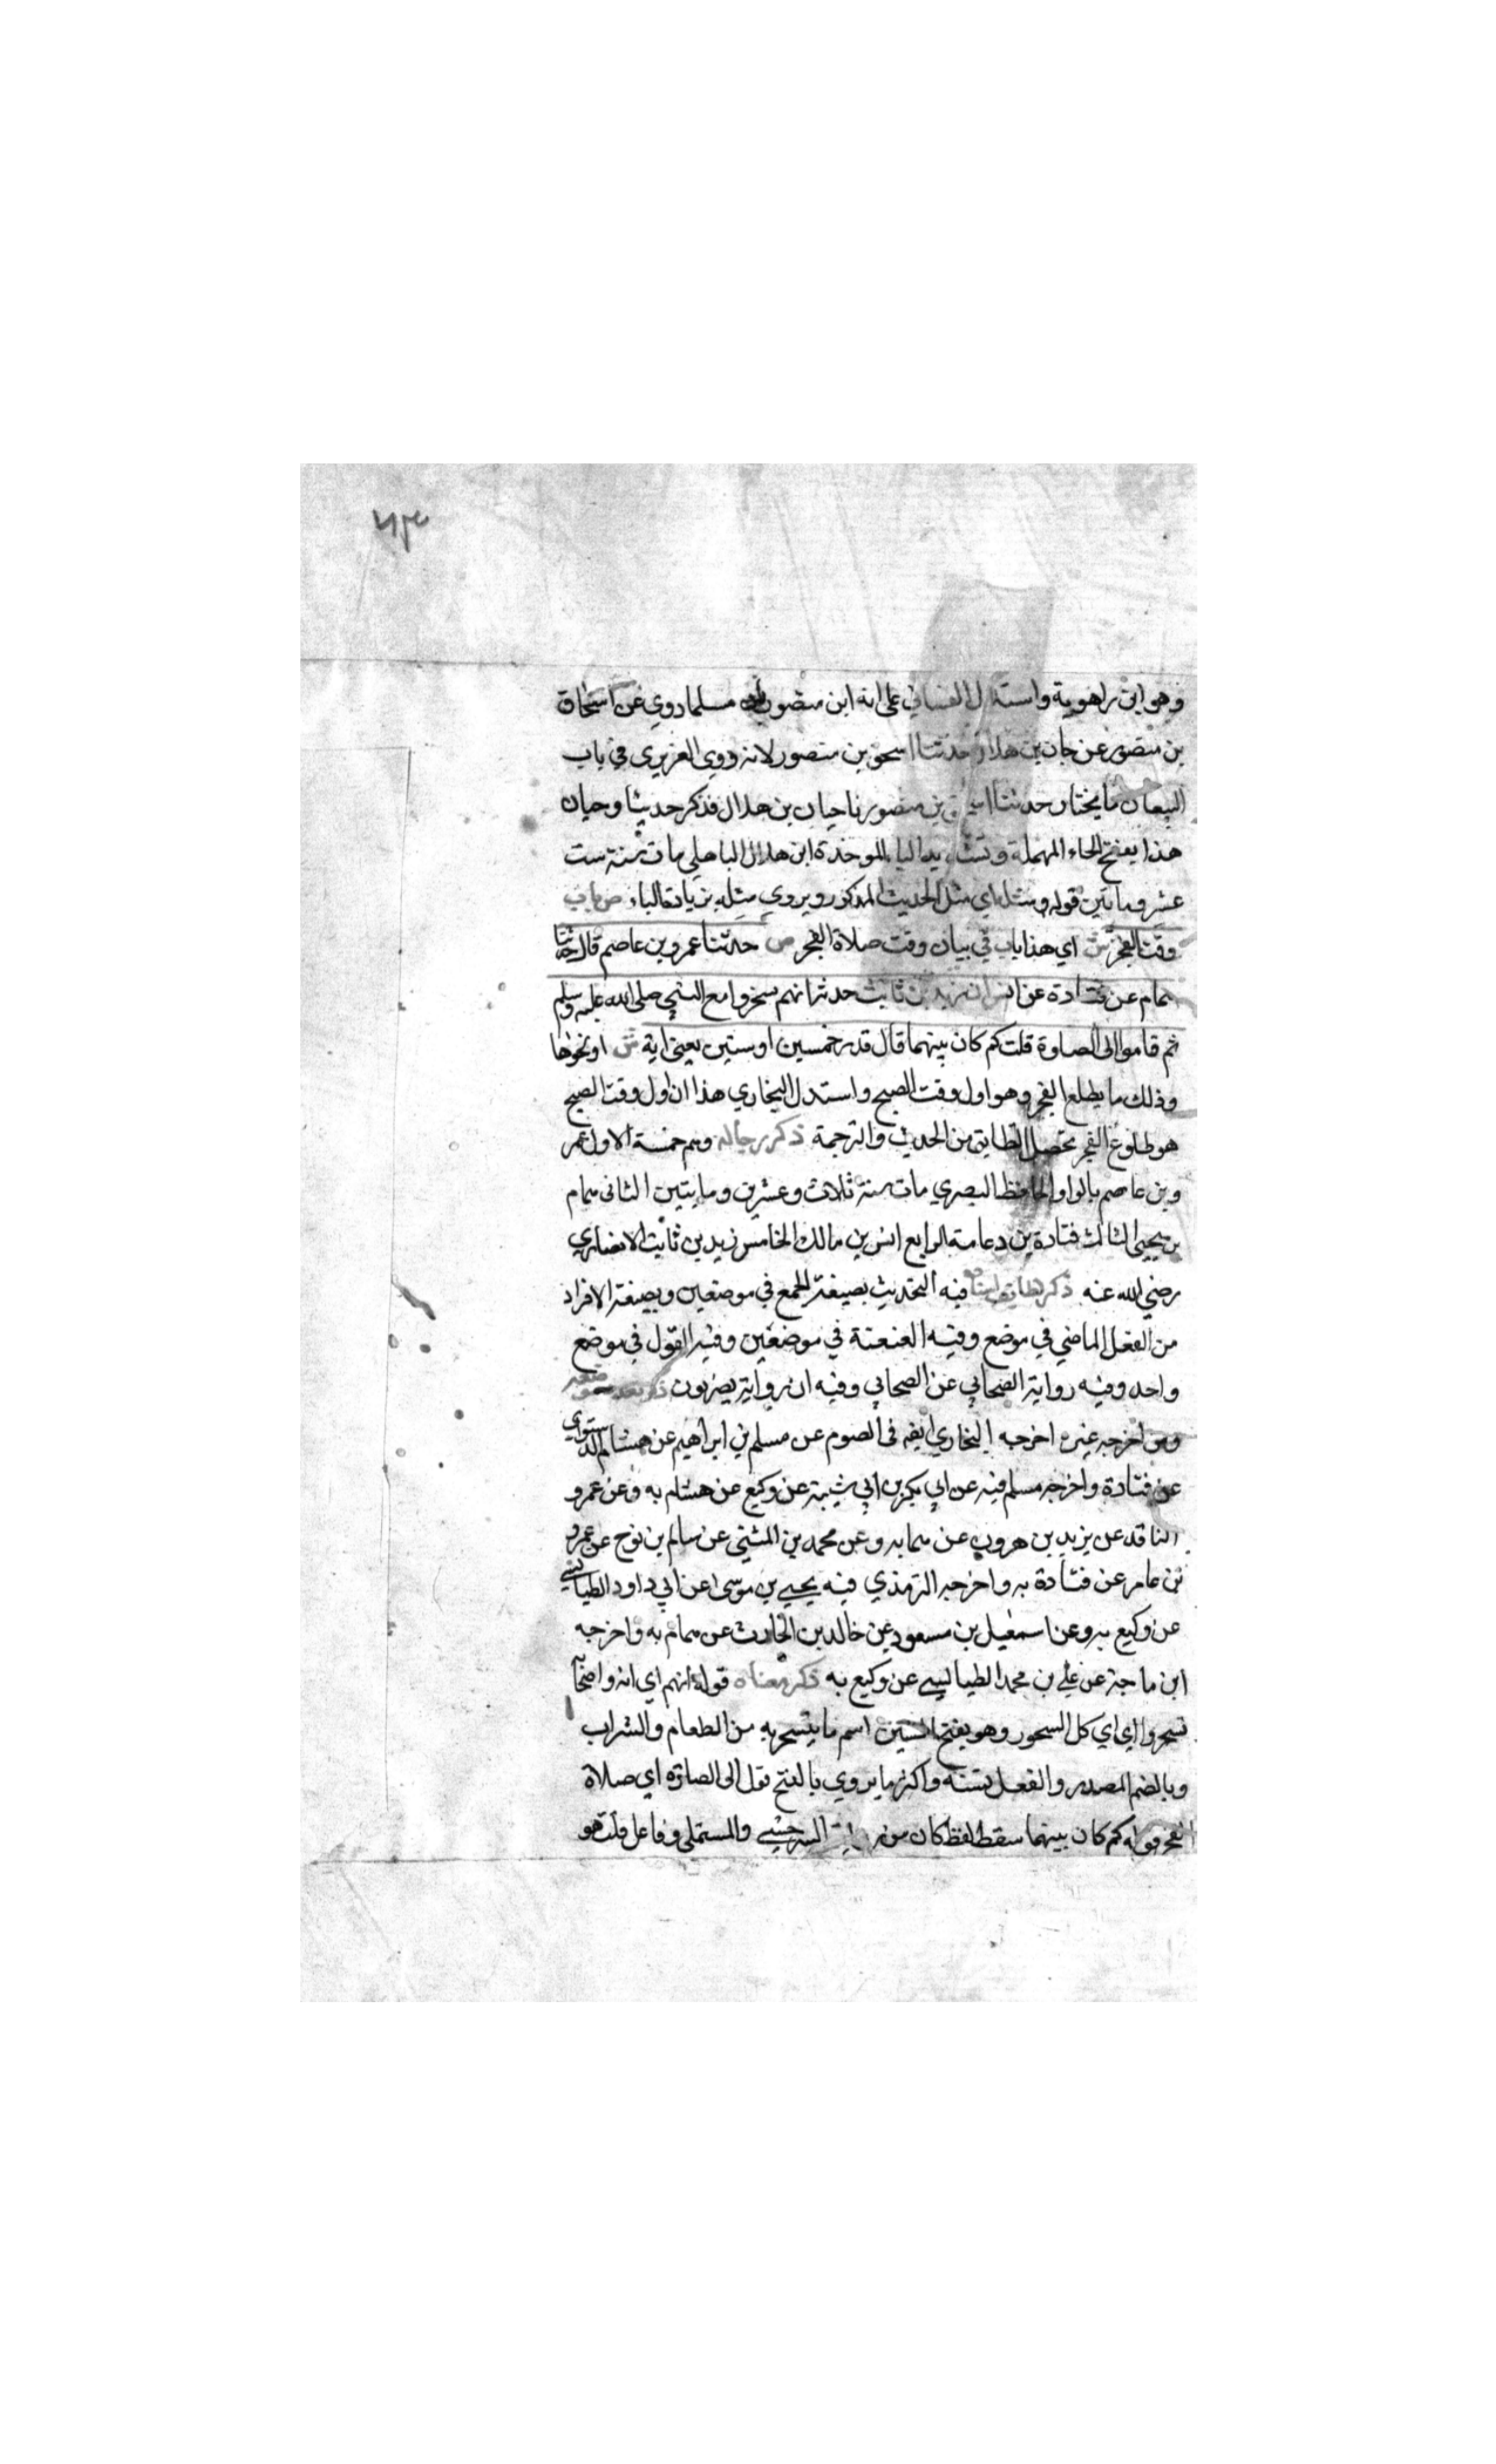 ٦٣
وهو ابن راهوية واستدل الغساني على انه ابن منصور بان مسلما روي عن اسحاق
بن منصور عن حان بن هلال حدثنا اسحق بن منصور لانه روي العزيزي في باب
البيعان ما يختار حدثنا اسحق بن منصور نا حيان بن هلال فذكر حديثا وحيان
هذا بفتح الحاء المهملة وتشديد الياء الموحدة ابن هلال الباهلي مات سنة ست
عشر ومايتين قوله ومثله اي مثل الحديث المذكور ويروي مثله بزيادة الباء ص باب
وقت الفجر ش اي هذا باب في بيان وقت صلاة الفجر ص حدثنا عمرو بن عاصم قال حدثنا
همام عن قتادة عن انس ان زيد بن ثابت حدثه انهم سحروا مع النبي صلى الله عليه وسلم
ثم قاموا الى الصلوة قلت كم كان بينهما قال قدر خمسين او ستين يعني اية ش او نحوها
وذلك ما يطلع الفجر وهو اول وقت الصبح واستدل البخاري هذا ان اول وقت الصبح
هو طلوع الفجر تحصل التطابق من الحديث والترجمة ذكر رجاله وهم خمسة الاول عمر
وبن عاصم بالواو الحافظ البصري مات سنة ثلاث وعشرين ومايتين الثاني همام
بن يحيى الثالث قتادة بن دعامة الرابع انس بن مالك الخامس زيد بن ثابت الانصاري
رضي الله عنه ذكر لطايف اسناده فيه التحديث بصيغة الجمع في موضعين وبصيغة الافراد
من الفعل الماضي في موضع وفيه العنعنة في موضعين وفيه القول في موضع
واحد وفيه رواية الصحابي عن الصحابي وفيه ان رواية بصريون ذكر تعدد موضعه
ومن اخرجه غيره اخرجه البخاري ايضا في الصوم عن مسلم بن ابراهيم عن هشام الدستواي
عن قتادة واخرجه مسلم فيه عن ابي بكر بن ابي شيبة عن وكيع عن هشام به وعن عمرو
الناقد عن يزيد بن هرون عن همام به وعن محمد بن المثنى عن سالم بن نوح عن عمرو
بن عامر عن قتادة به واخرجه الترمذي فيه يحيى بن موسى عن ابي داود الطيالسي
عن وكيع به وعن اسمعيل بن مسعود عن خالد بن الحارث عن همام به واخرجه
ابن ماجة عن علي بن محمد الطيالسي عن وكيع به ذكر معناه قوله انهم اي انه واصحابه
تسحروا اي اي كل السحور وهو بفتح السين اسم ما يتسحر به من الطعام والشراب
وبالضم المصدر والفعل بسنه واكثر ما يروي بالفتح قوله الى الصلوة اي صلاة
الفجر قوله كم كان بينهما سقط لفظ كان من رواية السرخسي والمستملي وفاعل قلت هو